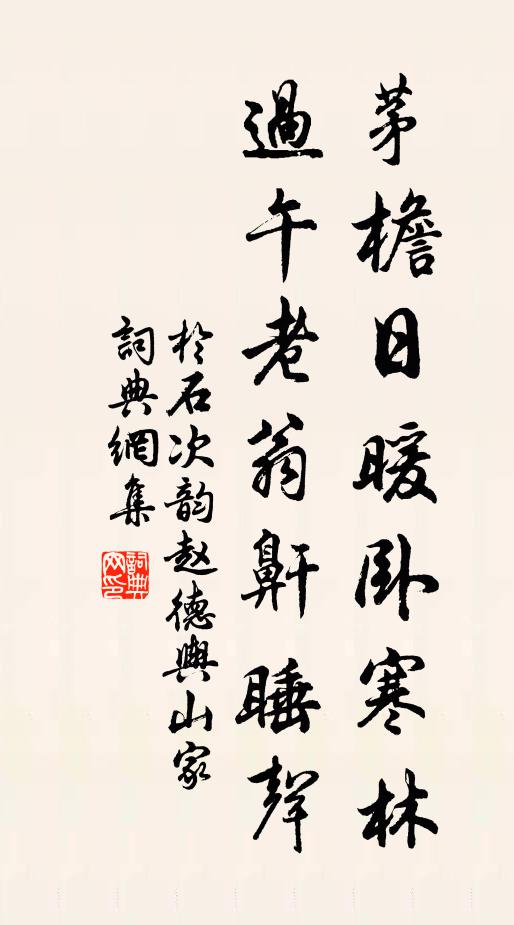 茅檐日暖卧寒林
過午老翁鼾睡聲
於石次韵趙德輿山家
詞典網集
詞典
网印